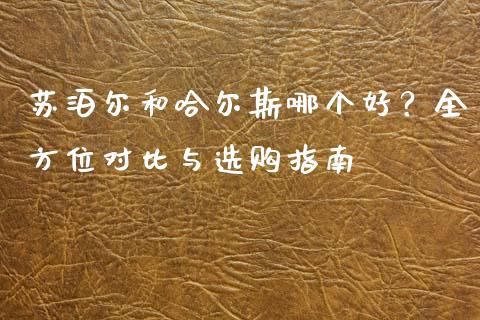 苏泊尔和哈尔斯哪个好？全
方位对比与选购指南